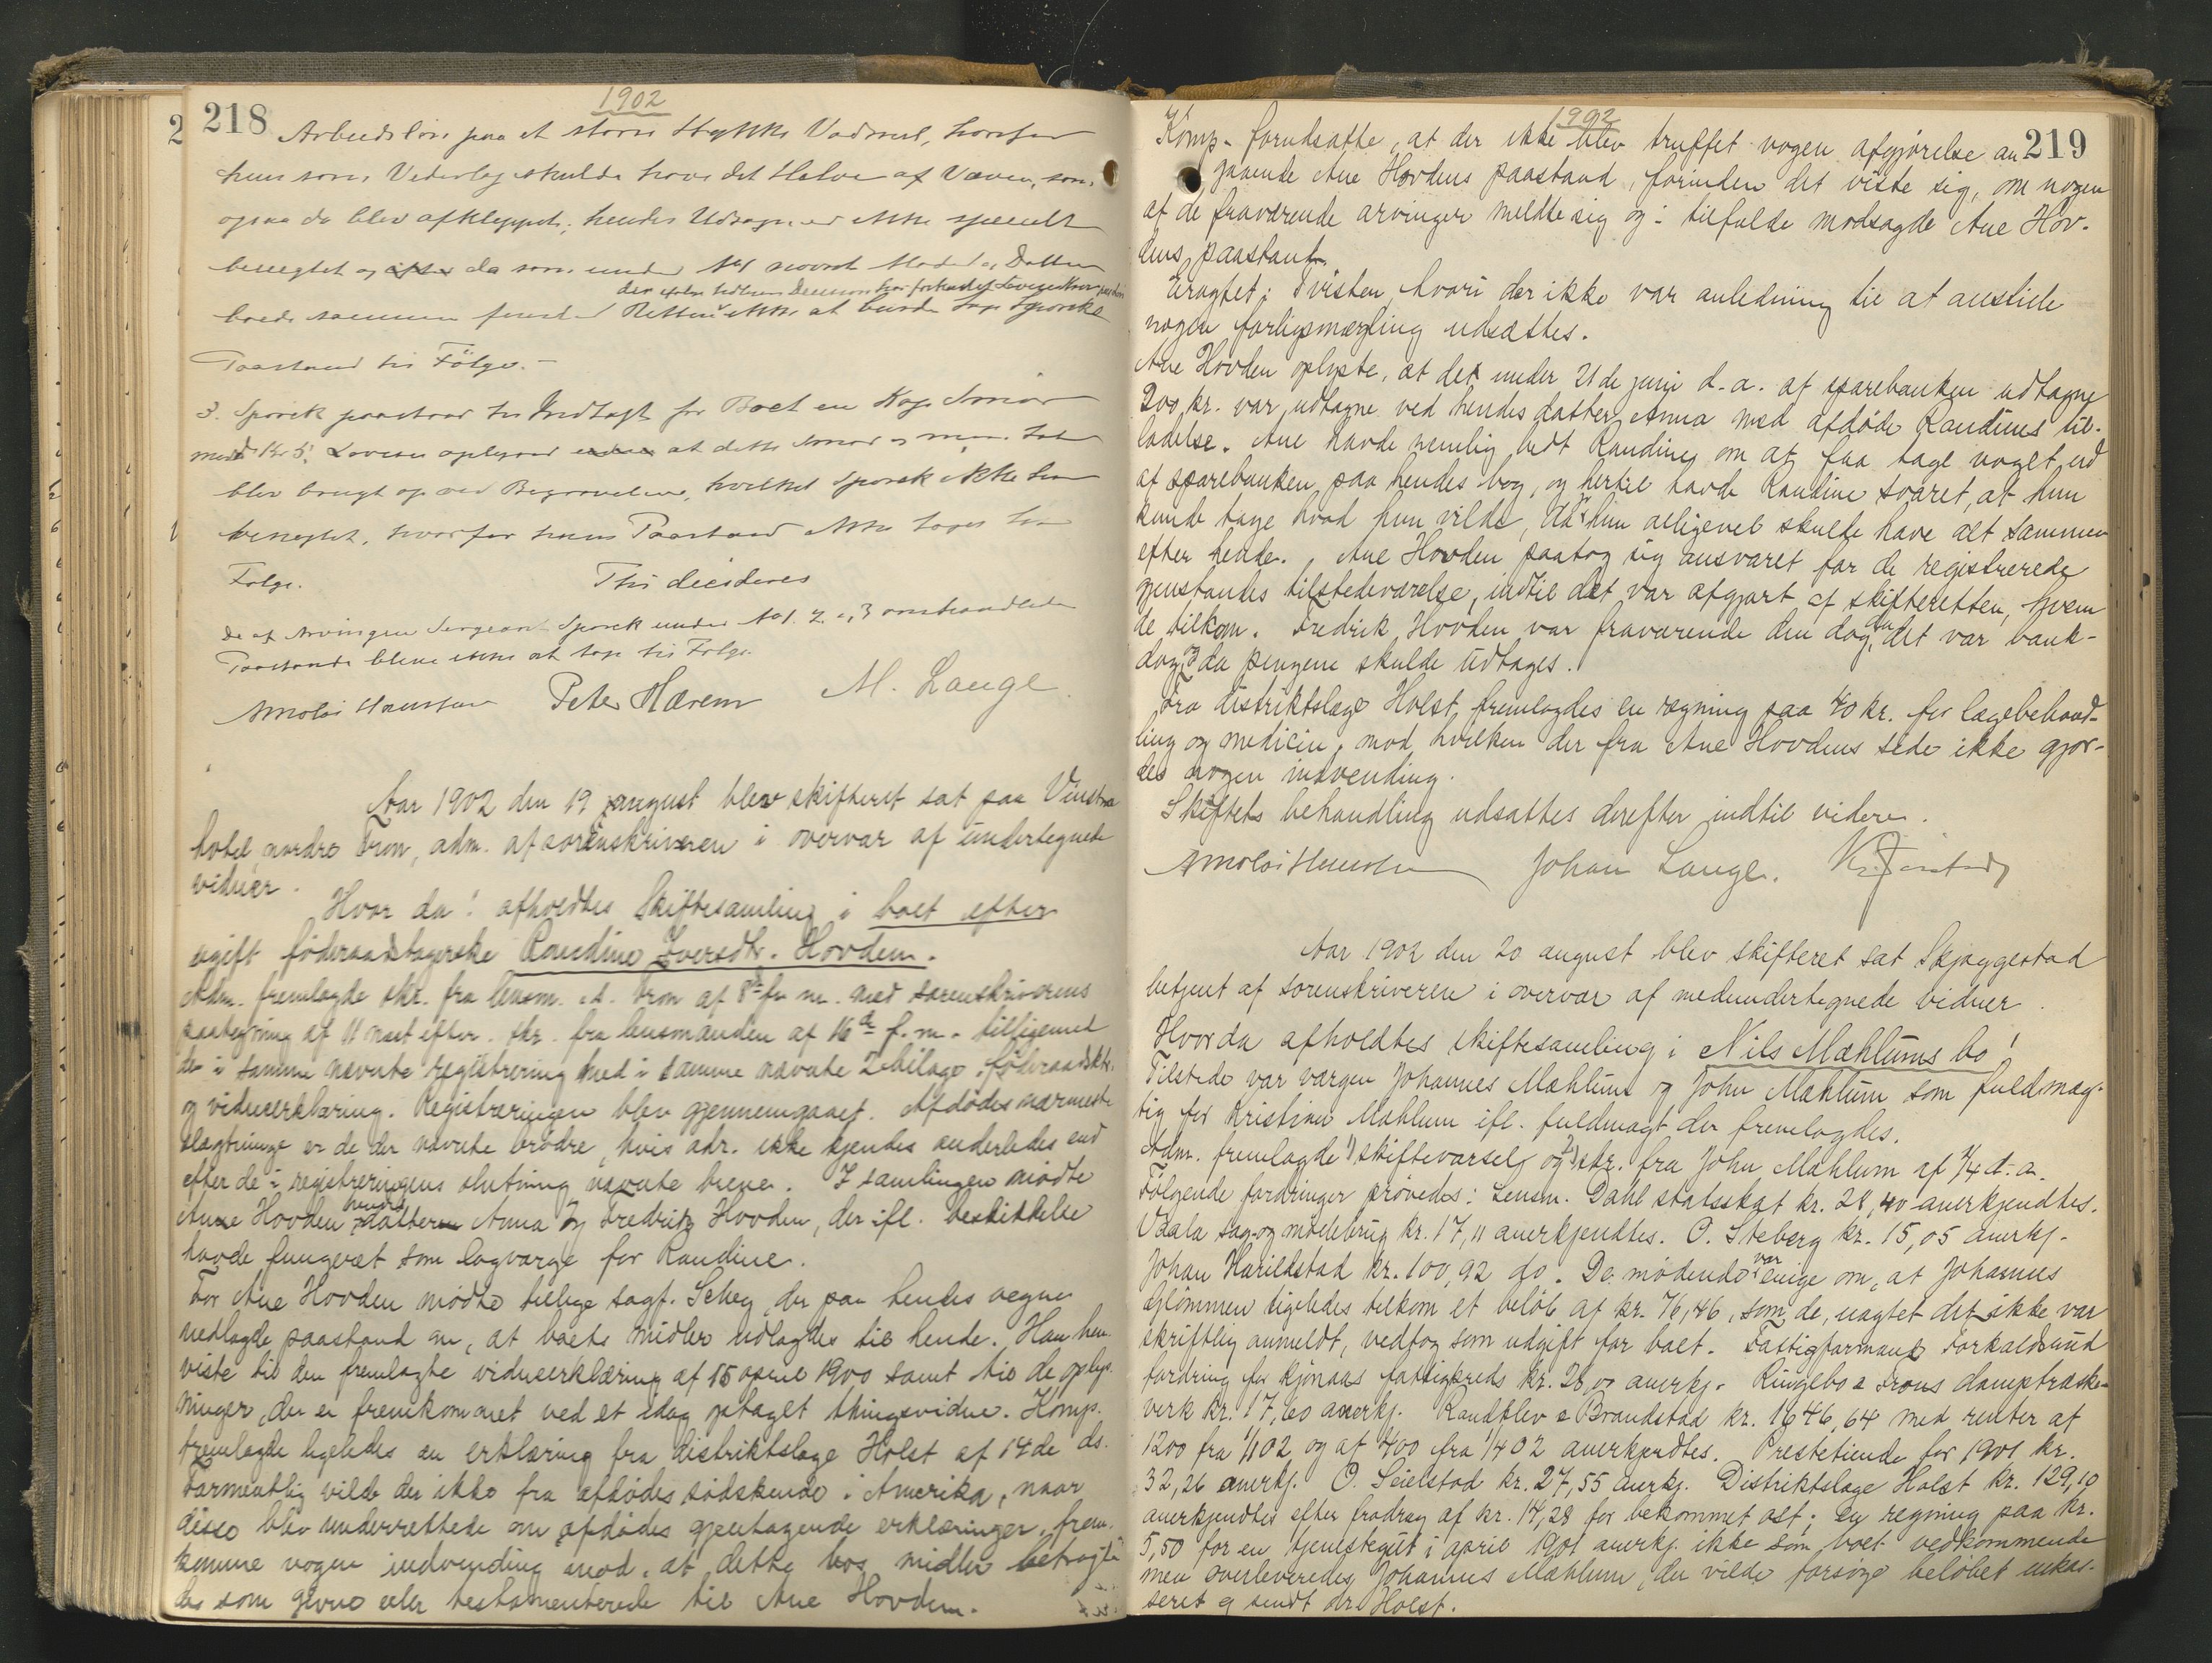 1902
218
Arbeidsløn paa et større Stykke Vadmel, hvorfor
hun som Vederlag skulde have det Halve af Væven, som
ogsaa da blev afklippet; hendes Udsagn er ikke specielt
benegtet og da som under No 1 nævnt Moder og Datter
boede sammen finder Retten ikke at burde tage Sporcks
Paastand til Følge.-
3. Sporck paastaar til Indtægt for Boet en Kop Smør
med Kr 5. Lovise oplyser at dette Smør og mere til
blev brugt op ved Begravelsen, hvilket Sporck ikke har
benegtet, hvorfor hans Paastand ikke tages til
Følge.
Thi decideres
De af Arvingen Sergeant Sporck under No 1. 2. og 3 omhandlede
Paastande blive ikke at tage til Følge.
Peter Hærem M. Lauge.
Aar 1902 den 19 august blev skifteret sat paa Vinstra
hotel, nordre Fron, adm. af sorenskriveren i overvær af undertegnede
vidner.
Hvor da: afholdtes Skiftesamling i boet efter
ugift føderaadstagerske Randine Iversdtr. Hovden.
Adm. fremlagde skr. fra lensm. i N. Fron af 8de f. m. med sorenskriverens
paategning af 11 næst efter. skr. fra lensmanden af 16de f. m. tilligemed
den i samme nævnte registrering med i samme nævnte 2 bilage: føderaadsktr.
og vidneerklæring. Registreringen blev gjennemgaaet. Afdødes nærmeste
slægtninge er de der nævnte brødre, hvis adr. ikke kjendes anderledes end
efter de i registreringens slutning nævnte breve. I samlingen mødte
Ane Hovden hendes datter Anna og Fredrik Hovden, der ifl. beskikkelse
havde fungeret som lagværge for Randine.
For Ane Hovden mødte tillige sagf. Scheg der paa hendes vegne
nedlagde paastand om, at boets midler udlagdes til hende. Han hen-
viste til den fremlagte vidneerklæring af 15 april 1900 samt til de oplys-
ninger, der er fremkommet ved et idag optaget thingsvidne. Komp.
fremlagde ligeledes en erklæring fra distriktslæge Holst af 14de ds.
Formentlig vilde der ikke fra afdødes sødskende i Amerika, naar
disse blev underrettede om afdødes gjentagende erklæringer, frem-
komme nogen indvending mod, at dette bos midler betragte-
des som givne eller testamenterede til Ane Hovden.
1902
219
Komp. forudsatte, at der ikke blev truffet nogen afgjørelse an-
gaaende Ane Hovdens paastand, forinden det viste sig, om nogen
af de fraværende arvinger meldte sig og i tilfælde modsagde Ane Hov-
dens paastand.
Eragtet: Tvisten, hvori der ikke var anledning til at anstille
nogen forligsmægling udsættes.
Ane Hovden oplyste, at det under 21de juni d. a. af sparebanken udtagne
200 kr. var udtagne ved hendes datter Anna med afdøde Randines til-
ladelse. Ane havde nemlig bedt Randine om at faa tage noget ud
af sparebanken paa hendes bog, og hertil havde Randine svaret, at hun
kunde tage hvad hun vilde, da hun alligevel skulde have alt sammen
efter hende. Ane Hovden paatog sig ansvaret for de registrerede
gjenstandes tilstedeværelse, indtil det var afgjort af skifteretten, hvem
de tilkom. Fredrik Hovden var fraværende den dag, da det var bank-
dag og da pengene skulde udtages.
Fra distriktslæge Holst fremlagdes en regning paa 40 kr. for lægebehand-
ling og medicin, mod hvilken der fra Ane Hovdens side ikke gjor-
des nogen indvending.
Skiftets behandling udsattes derefter indtil videre.
Johan Lauge.
Aar 1902 den 20 august blev skifteret sat Skjæggestad
betjent af sorenskriveren i overvær af medundertegnede vidner.
Hvor da afholdtes skiftesamling i Nils Mæhlums bo:
Tilstede var værgen Johannes Mæhlum og John Mæhlum som fuldmæg-
tig for Kristine Mæhlum ifl. fuldmagt der fremlagdes.
Adm. fremlagde 1) skiftevarsel og 2) skr. fra John Mæhlum af 7/4 d. a.
Følgende fordringer prøvedes: Lensm. Dahl statsskat kr. 28,40 anerkjendtes.
Vaala sag og møllebrug kr. 17,11 anerkjendtes. O. Steberg kr. 15,05 anerkj.
Johan Harildstad kr. 100,92 do. De mødende var enige om, at Johannes
Glømmen ligeledes tilkom et beløb af kr. 76,46, som de, uagtet det ikke var
skriftlig anmeldt, vedtog som udgift for boet. Fattigformand Forkalsrud
fordring for Kjønaas fattigkreds kr. 28,00 anerkj. Ringebo & Frons damptræske-
verk kr. 17,60 anerkj. Randklev & Brandstad kr. 1646,64 med renter af
1200 fra 1/1 02 og af 400 fra 1/4 02 anerkjendtes. Prestetiende for 1901 kr.
32,26 anerkj. O. Seielstad kr. 27,55 anerkj. Distriktslæge Holst kr. 129,10
anerkjendtes efter fradrag af kr. 14,28 for bekommet ost; en regning paa kr.
5,50 for en tjenstegut i april 1901 anerkj. ikke som boet vedkommende
men overleveredes Johannes Mæhlum, der vilde forsøge beløbet inkas-
seret og sendt dr. Holst.